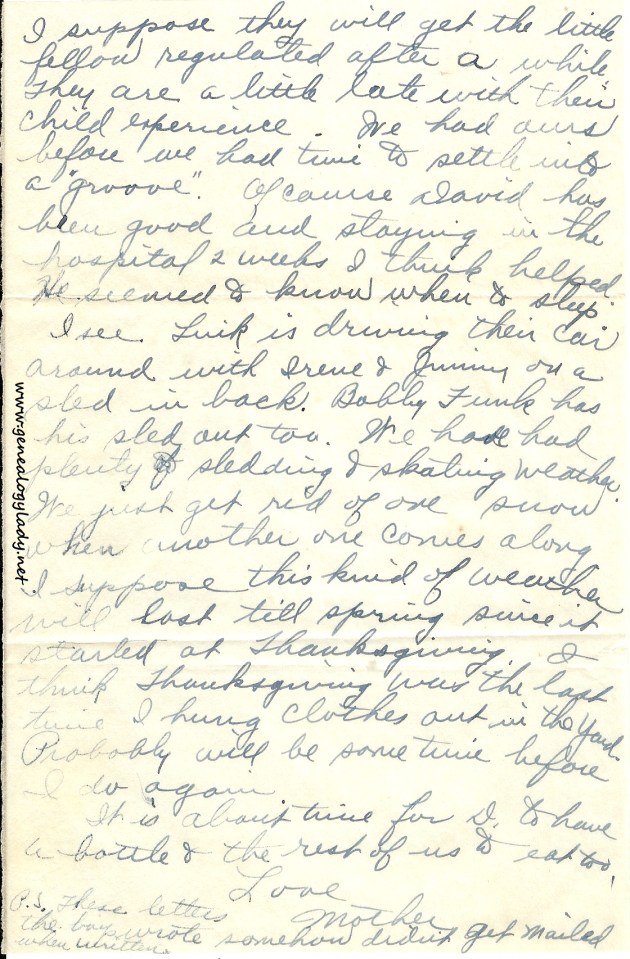 I suppose they will get the little
fellow regulated after a while.
They are a little late with their
child experience. We had ours
before we had time to settle into
a "groove". Of course David has
been good and staying in the
hospital 2 weeks I think helped.
He seemed to know when to sleep.
I see Link is driving their car
around with Irene & Jimmy on a
sled in back. Bobby Funk has
his sled out too. We have had
plenty of sledding & skating weather.
We just get rid of one snow
when another one comes along
I suppose this kind of weather
will last till spring since it
started at Thanksgiving. I
think Thanksgiving was the last
time I hung clothes out in the yard.
Probably will be some time before
I do again
It is about time for D. to have
a bottle & the rest of us to eat too.
Love
Mother
P.S. These letters
the boy wrote somehow didn't get mailed
when written.
www.genealogylady.net